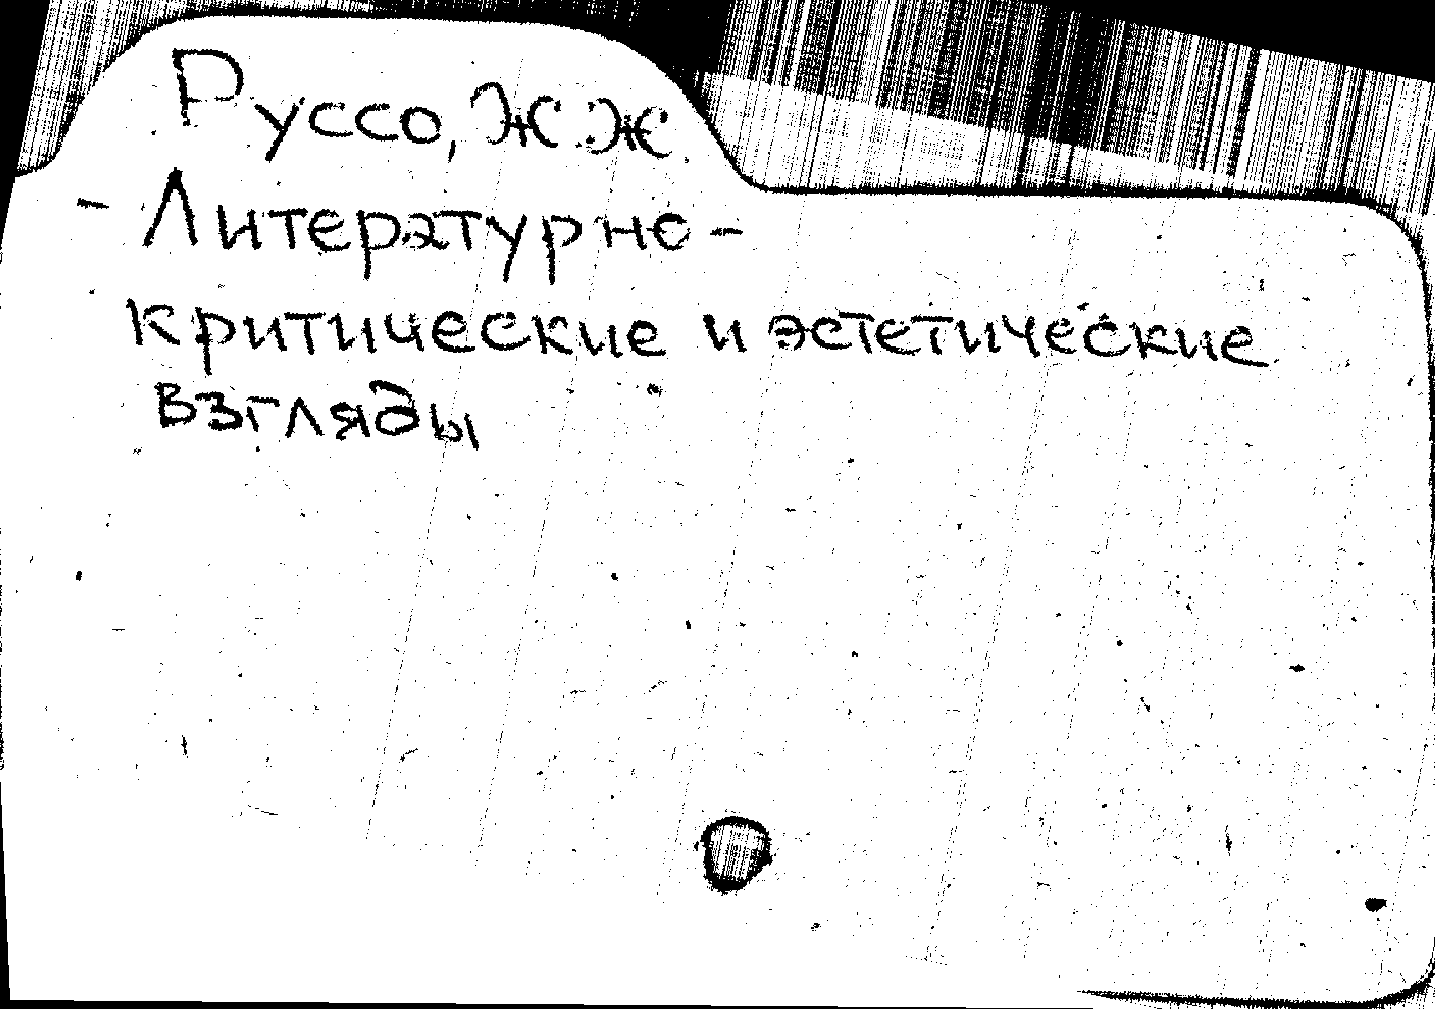 Руссо, Ж.Ж.
- Литературно-
критические и эстетические
взгляды